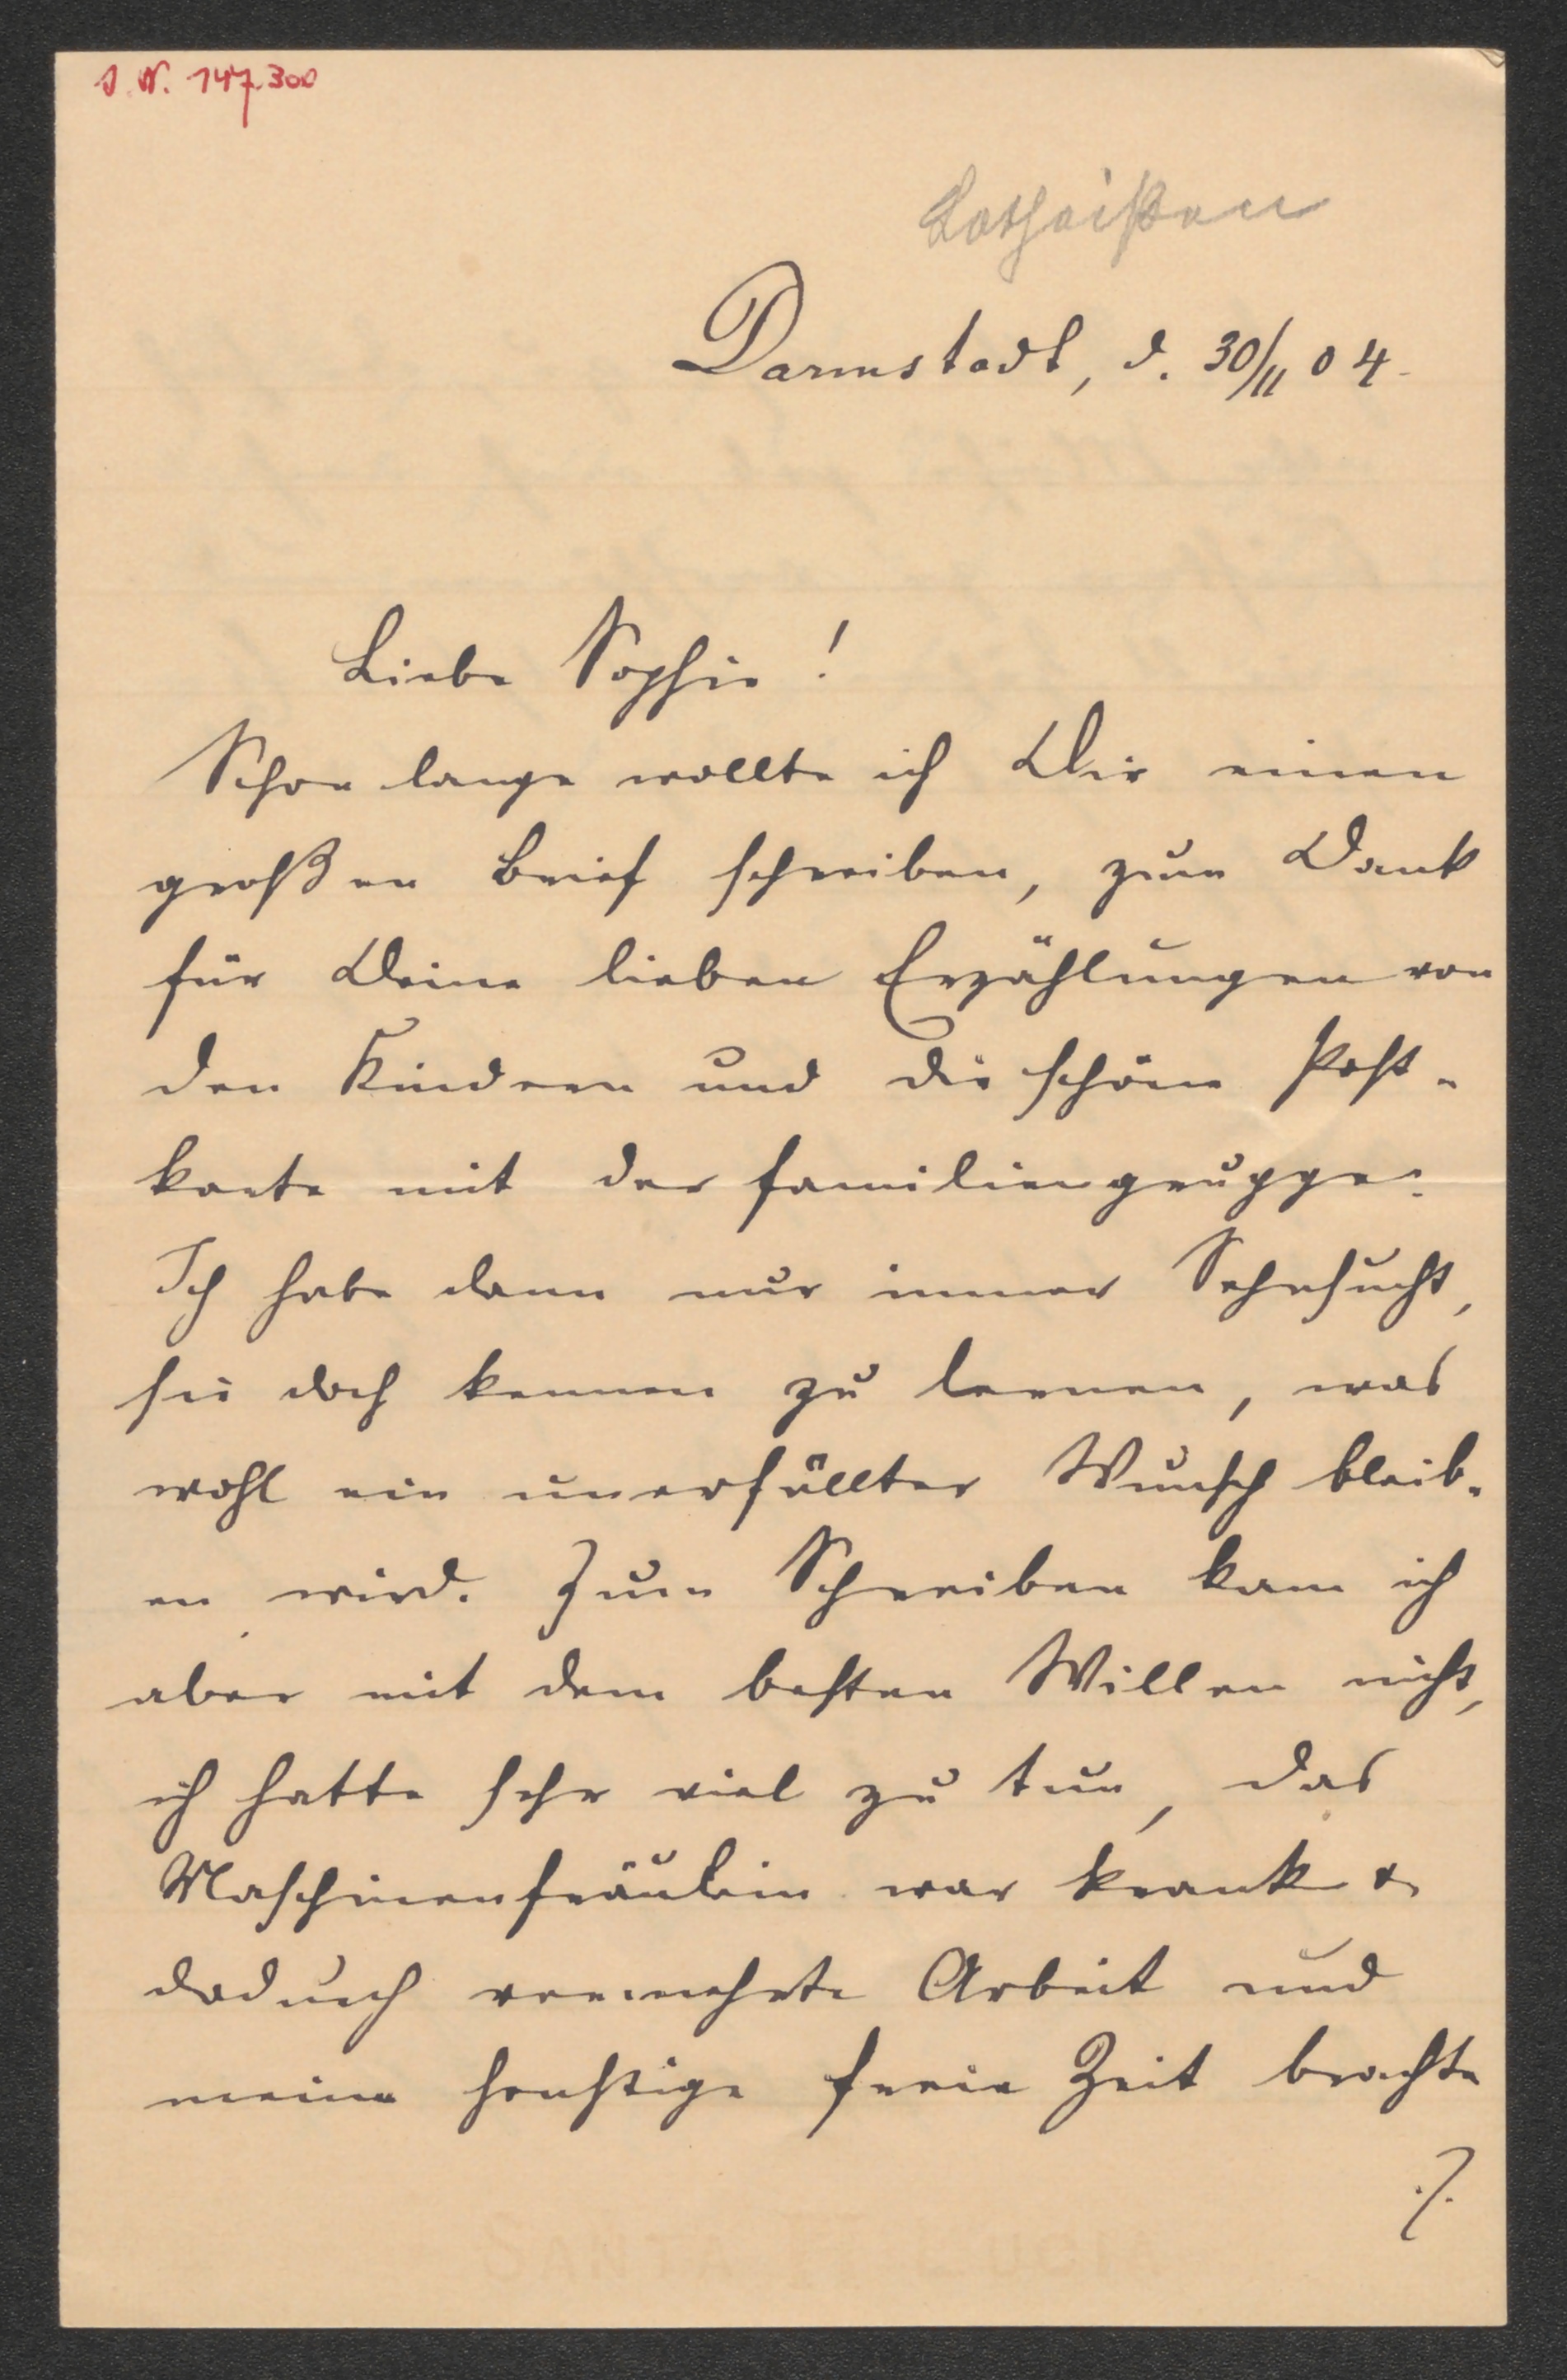 I. N. 147.300
Lotheißen
Darmstadt, d. 30/11 04.
Liebe Sophie!
Schon lange wollte ich Dir einen
großen Brief schreiben, zum Dank
für Deine lieben Erzählungen von
den Kindern und die schöne Post-
karte mit der Familiengruppe.
Ich habe dann nur immer Sehnsucht,
sie doch kennen zu lernen, was
wohl ein unerfüllter Wunsch bleib-
en wird. Zum Schreiben kam ich
aber mit dem besten Willen nicht,
ich hatte sehr viel zu tun, das
Maschinenfräulein war krank &
dadurch vermehrte Arbeit und
meine sonstige freie Zeit brachte
./.